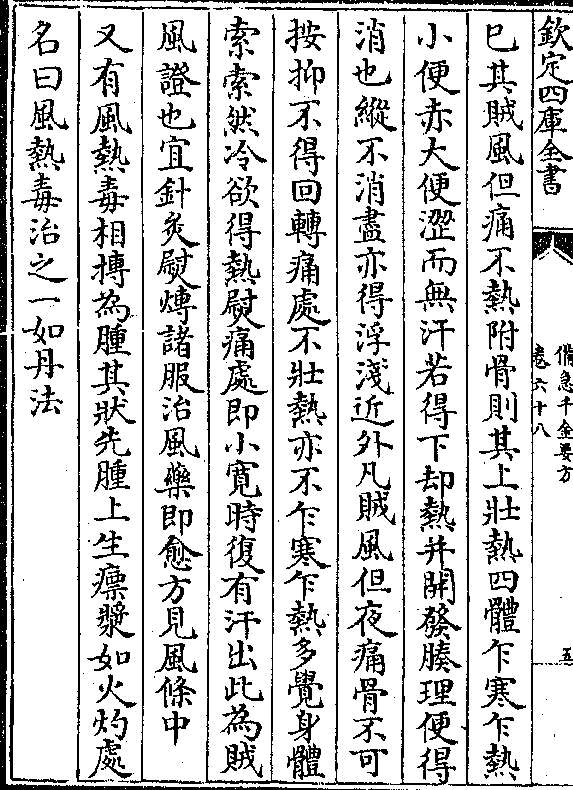 欽定四庫全書
備急千金要方
卷六十八
五
已其賊風但痛不熱附骨則其上壯熱四體乍寒乍熱
小便赤大便澀而無汗若得下却熱并開發腠理便得
消也縱不消盡亦得浮淺近外凡賊風但夜痛骨不可
按抑不得回轉痛處不壯熱亦不乍寒乍熱多覺身體
索索然冷欲得熱熨痛處即小寛時復有汗出此為賊
風證也宜針灸熨煿諸服治風藥即愈方見風條中
又有風熱毒相摶為腫其狀先腫上生瘭漿如火灼處
名曰風熱毒治之一如丹法